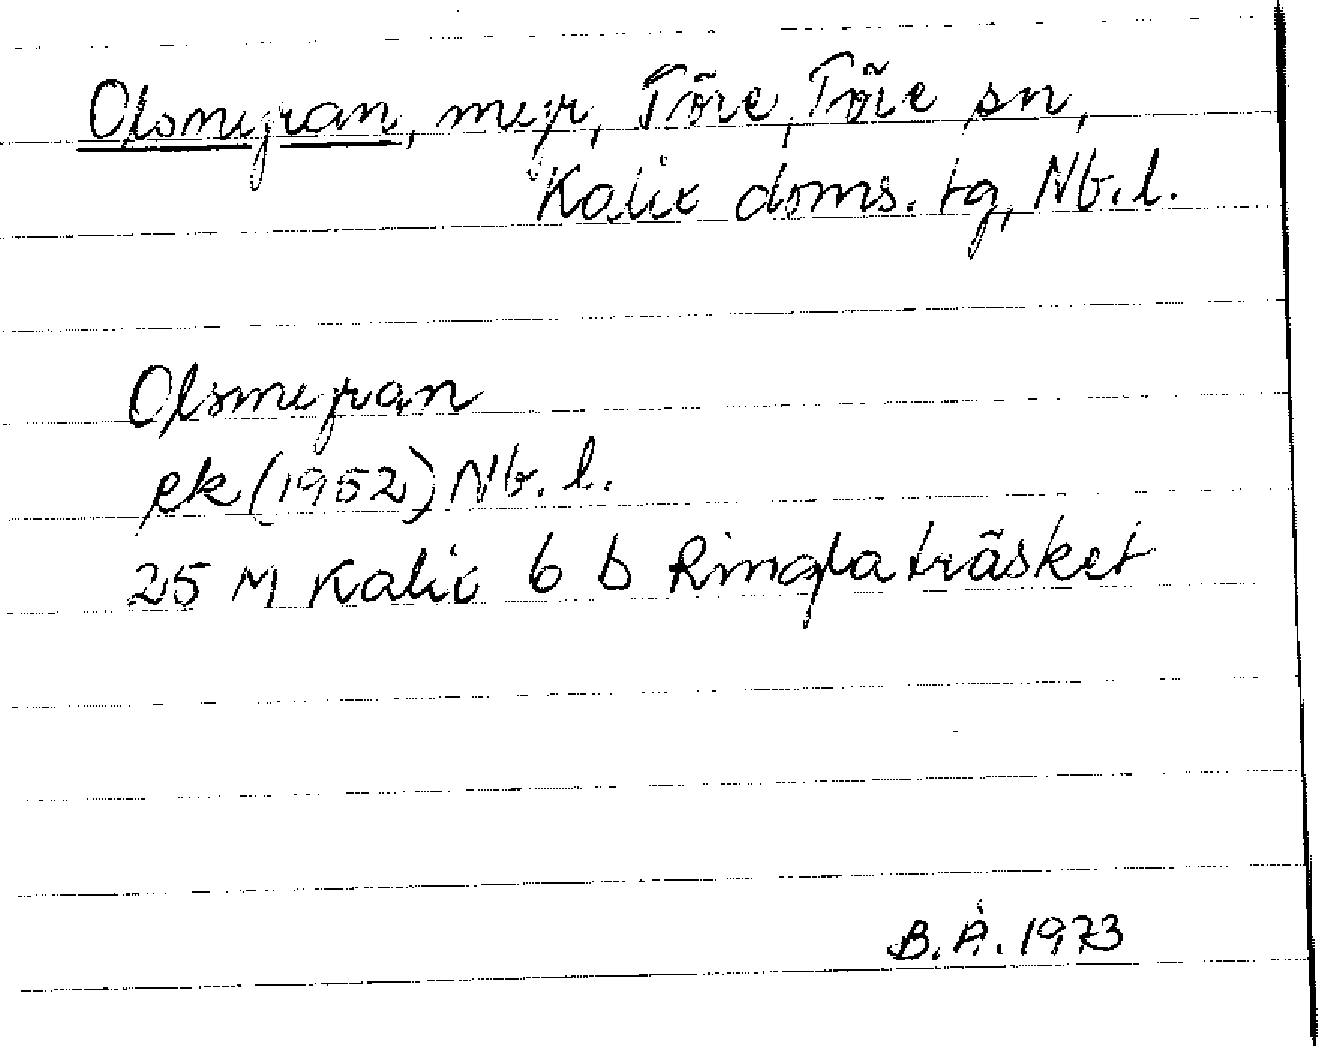 Olsmyran, myr, Töre, Töre sn,
Kalix doms. tg, Nb.l.
Olsmyran
ek (1952) Nb.l.
25 M Kalix 6 b Ringlaträsket
B.Å. 1973